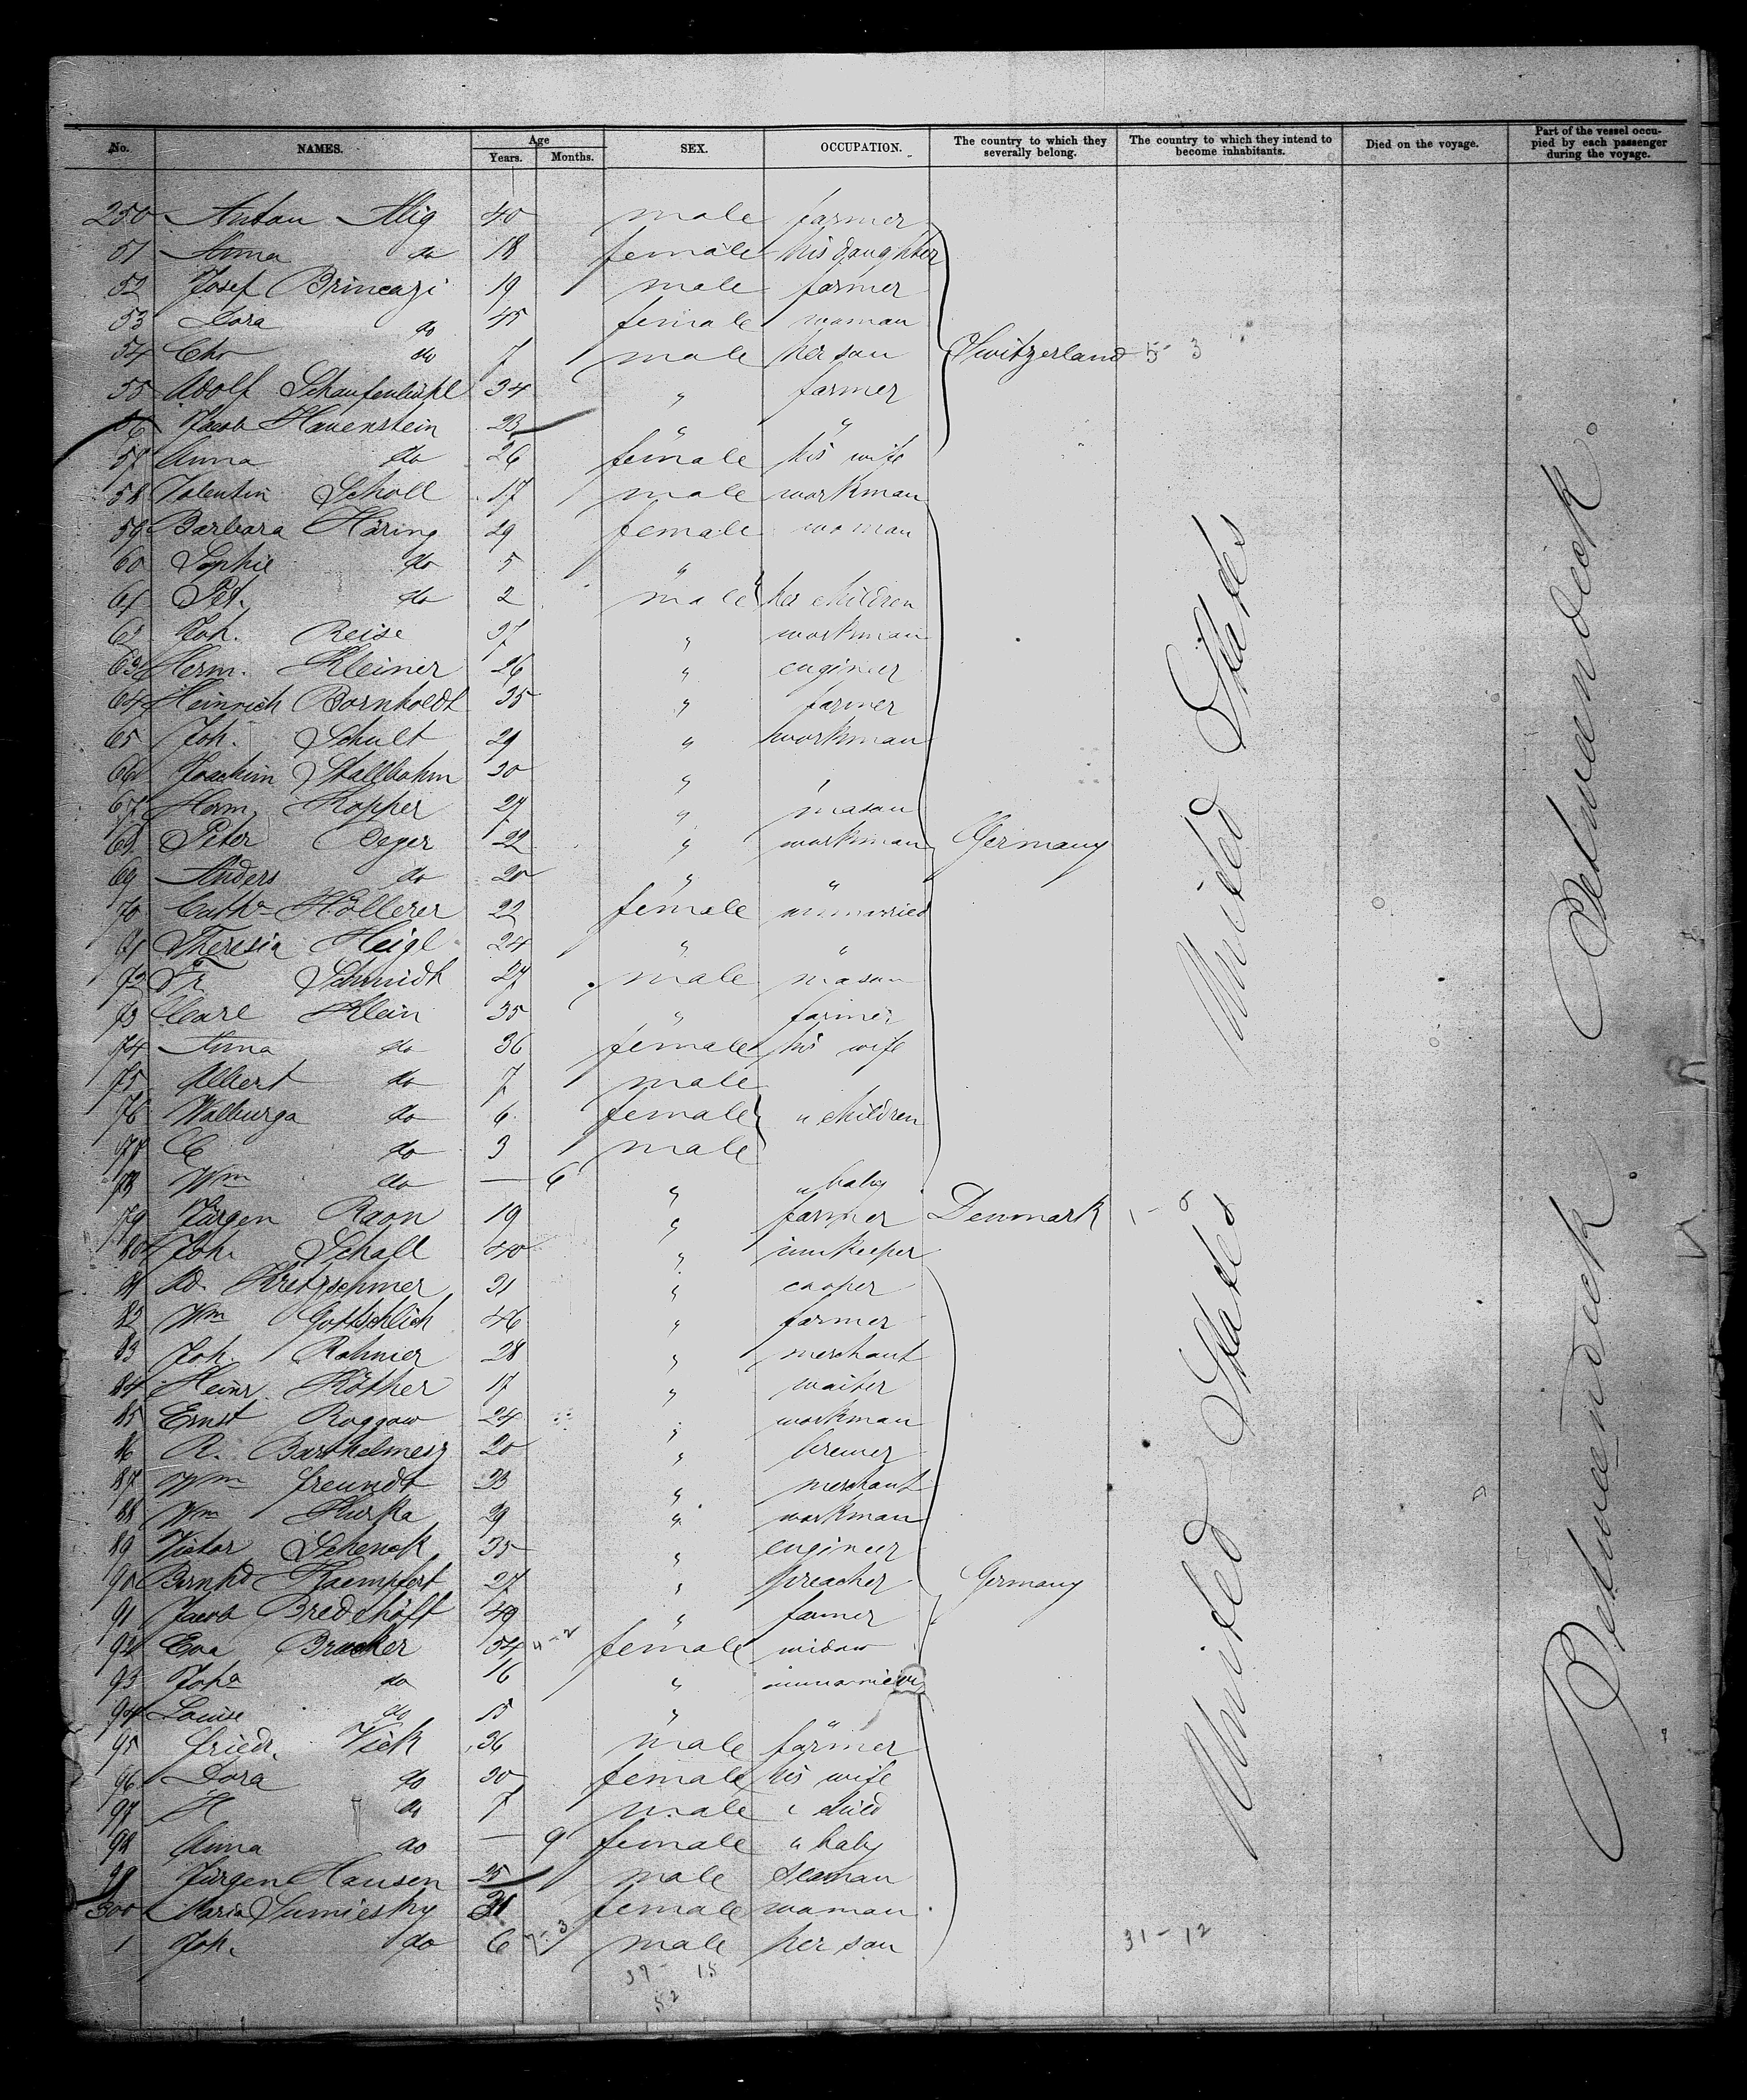 No. NAMES. Age Years. Months. SEX. OCCUPATION. The country to which they severally belong. The country to which they intend to become inhabitants. Died on the voyage. Part of the vessel occupied by each passenger during the voyage.
250 Anton Alig 40 male farmer
51 Anna do 18 female his daughter
52 Josef Brincazi 19 male farmer
53 Dora do 45 female woman
54 Chr do 7 male her son Switzerland 5-3
55 Adolf Schaufenbühl 34 " farmer
56 Jacob Hauenstein 23 " "
57 Anna do 26 female his wife
58 Valentin Scholl 17 male workman
59 Barbara Häring 29 female woman
60 Sophie do 5 "
61 Pet. do 2 male her children
62 Joh. Reise 37 " workman
63 Herm. Kleiner 26 " engineer
64 Heinrich Bornholdt 35 " farmer
65 Joh. Schult 29 " workman
66 Joachim Stallbohm 30 " "
67 Herm. Kopper 27 " mason
68 Peter Deger 22 " workman Germany
69 Anders do 20 " "
70 Cath. Höllerer 22 female unmarried
71 Theresia Heigl 24 " "
72 Fr. Schmidt 27 male mason
73 Carl Klein 35 " farmer
74 Anna do 36 female his wife
75 Albert do 7 male
76 Walburga do 6 female " children
77 C do 3 male
78 Wm do — 6 " " baby
79 Jürgen Raon 19 " farmer Denmark 1-0
80 Joh. Schall 40 " innkeeper
81 Ad. Kretzschmer 31 " cooper
82 Wm Gottschlich 46 " farmer
83 Joh. Rohmer 28 " merchant
84 Heinr. Köther 17 " waiter
85 Ernst Roggow 24 " workman
86 R. Barthelmess 20 " brewer
87 Wm Freundt 23 " merchant
88 Wm Kurka 29 " workman
89 Victor Schenck 35 " engineer
90 Bernhd Kaempfert 27 " preacher Germany
91 Jacob Bredehöft 49 " farmer
92 Eva Bracker 54 female widow
93 Joha do 16 " unmarried
94 Louise do 15 " "
95 Friedr. Vick 36 male farmer
96 Dora do 30 female his wife
97 H do 7 male " child
98 Anna do — 9 female " baby
99 Jürgen Hansen 25 male seaman
300 Maria Sumiesky 31 female woman
1 Joh. do 6 male her son 31-12
37- 15
52
United States
United States
Betweendeck
Betweendeck